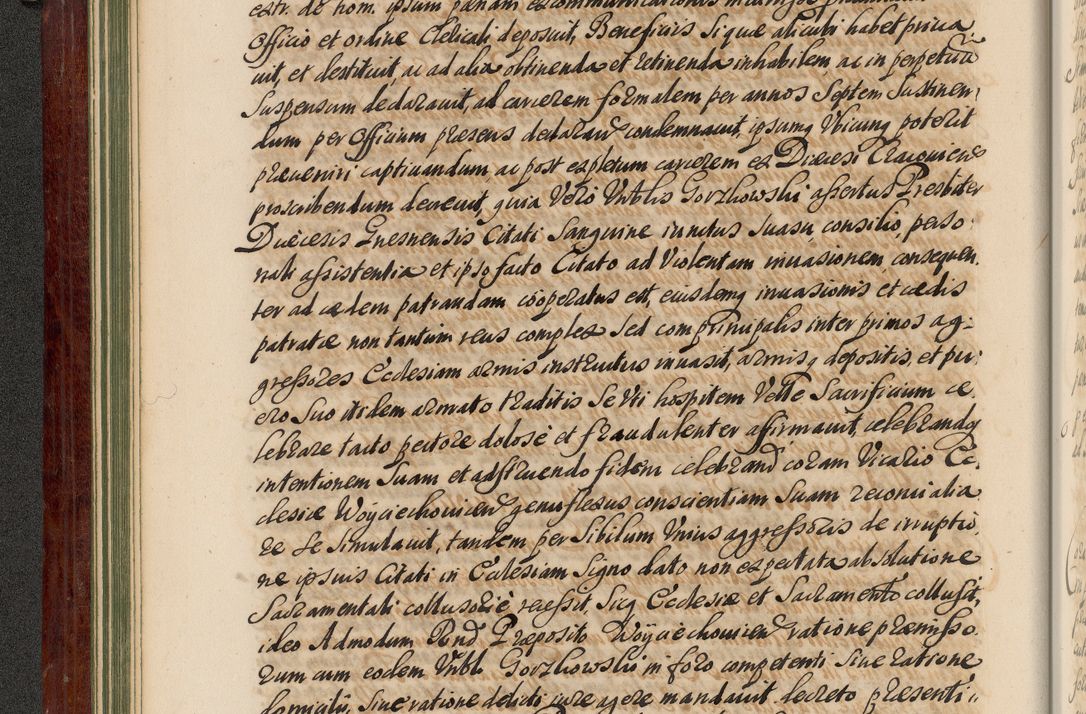 estr. de hom. ipsum pœnam excommunicationis incurisse
Officio et ordine Clelicali deposuit, Beneficiis si quæ alicubi habet priua,
uit, et destituit ac ad alia obtinenda et retinenda inhabilem ac in perpetuũ
Suspensum declarauit, ad carcerem formalem per annos Septem Sustinen,
dum per Officium præsens declaran̄ condemnauit, ipsumq Vbicunq poterit
præueniri captiuandum ac post expletum carcerem ex Diæcesi Cracouien̄
proscribendum decreuit, quia Vero Vrblis Gorzkowski assertus Presbiter
Diæcesis Gnesnensis Citati Sanguine iunctus Suasu, consilio, perso
nali assistentia et ipso facto Citato ad Violentam inuasionem, consequen.
ter ad cædem patrandam cooperatus est, eiusdemq inuasionis et cædis
patratæ non tantum reus complex sed comprincipalis inter primos ag:
gressores Ecclesiam armis instructus inuasit, armisq depositis, et pu:
ero Suo itidem armato traditis Se Vti hospitem Velle Sacrificium ce
lebrare tacto pectore dolosè et fraudulenter affirmauit, celebrandq
intentionem Suam et adstruendo fidem celebrand coram Vicario Ec,
clesiæ Woyciechouien̄ genuflexus conscientiam Suam reconcialia
re se Simulauit, tandem per Sibilum Vnius aggressoris de irruptio
ne ipsius Citati in Ecclesiam Signo dato non expectata absolutione
Sacramentali collusoriè recessit, Sicq Ecclesiæ et Sacramento collusit,
ideo Admodum Rnd Præposito Woyciechouien̄ ratione præmisso
rum cum eodem Vrbli Gorzkowski in foro competenti Siue ratione
domicilij, Siue ratione delicti iure agere mandauit decreto præsenti,,